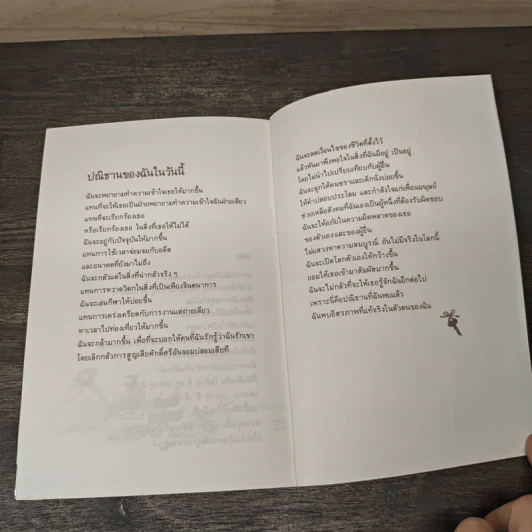 ปณิธานของฉันในวันนี้
ฉันจะพยายามทำความเข้าใจเธอให้มากขึ้น
แทนที่จะให้เธอเป็นฝ่ายพยายามทำความเข้าใจฉันฝ่ายเดียว
แทนที่จะเรียกร้องเธอ
หรือเรียกร้องเธอ ในสิ่งที่เธอให้ไม่ได้
ฉันจะอยู่กับปัจจุบันให้มากขึ้น
แทนการใช้เวลาจ่อมจมกับอดีต
และอนาคตที่ยังมาไม่ถึง
ฉันจะกลัวแต่ในสิ่งที่น่ากลัวจริง ๆ
แทนการหวาดวิตกในสิ่งที่เป็นเพียงจินตนาการ
ฉันจะเล่นกีฬาให้บ่อยขึ้น
แทนการเคร่งเครียดกับการงานแต่ถ่ายเดียว
หาเวลาไปท่องเที่ยวให้มากขึ้น
ฉันจะกล้ามากขึ้น เพื่อที่จะบอกให้คนที่ฉันรักรู้ว่าฉันรักเขา
โดยเลิกกลัวการสูญเสียศักดิ์ศรีอันจอมปลอมเสียที
ฉันจะลดเงื่อนไขของชีวิตที่ตั้งไว้
แล้วหันมาพึงพอใจในสิ่งที่ฉันมีอยู่ เป็นอยู่
โดยไม่นำไปเปรียบเทียบกับผู้อื่น
ฉันจะลูกให้คนชราและเด็กนั่งบ่อยขึ้น
ให้คำปลอบประโลม และกำลังใจแก่เพื่อนมนุษย์
ช่วยเหลือสังคมที่ฉันเองเป็นผู้หนึ่งที่ต้องรับผิดชอบ
ฉันจะให้อภัยในความผิดพลาดของเธอ
ของตัวเองและของผู้อื่น
ไม่แสวงหาความสมบูรณ์ อันไม่มีจริงในโลกนี้
ฉันจะเปิดโลกตัวเองให้กว้างขึ้น
ยอมให้เธอเข้ามาสัมผัสมากขึ้น
ฉันจะไม่กลัวที่จะให้เธอรู้จักฉันอีกต่อไป
เพราะนี่คือปณิธานที่ฉันพบแล้ว
ฉันพบอิสรภาพที่แท้จริงในตัวตนของฉัน